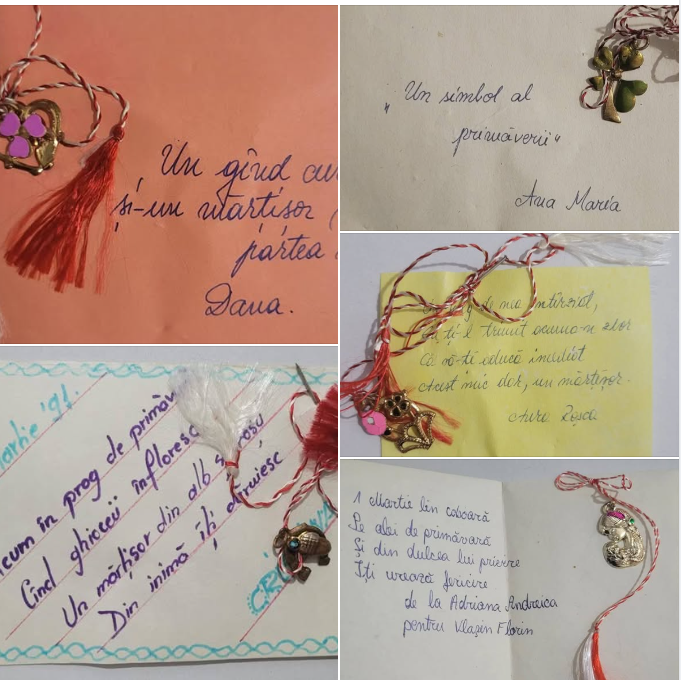 Un gînd cu
și-un mărțișor
partea
Dana.
„Un simbol al
primăverii“
Ana Maria
de mic întîrziat,
ți-l trimit acuma-n zbor
Ca să-ți aducă imediat
Acest mic dor, un mărțișor.
Aura Roșca
Martie '91.
Acum în prag de primăv
Cînd ghioceii înfloresc
Un mărțișor din alb
Din inimă îți dăruiesc
1 Martie lin coboară
Pe alei de primăvară
Și din dulcea lui privire
Îți urează fericire
de la Adriana Andreica
pentru Vlașin Florin